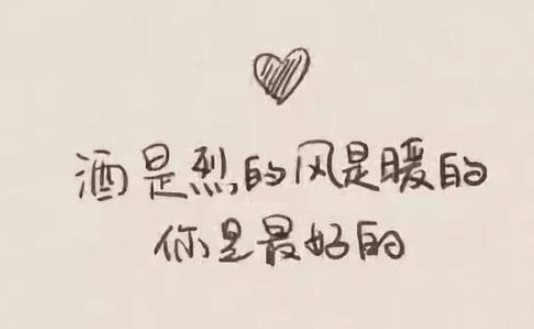 酒是烈的风是暖的
你是最好的